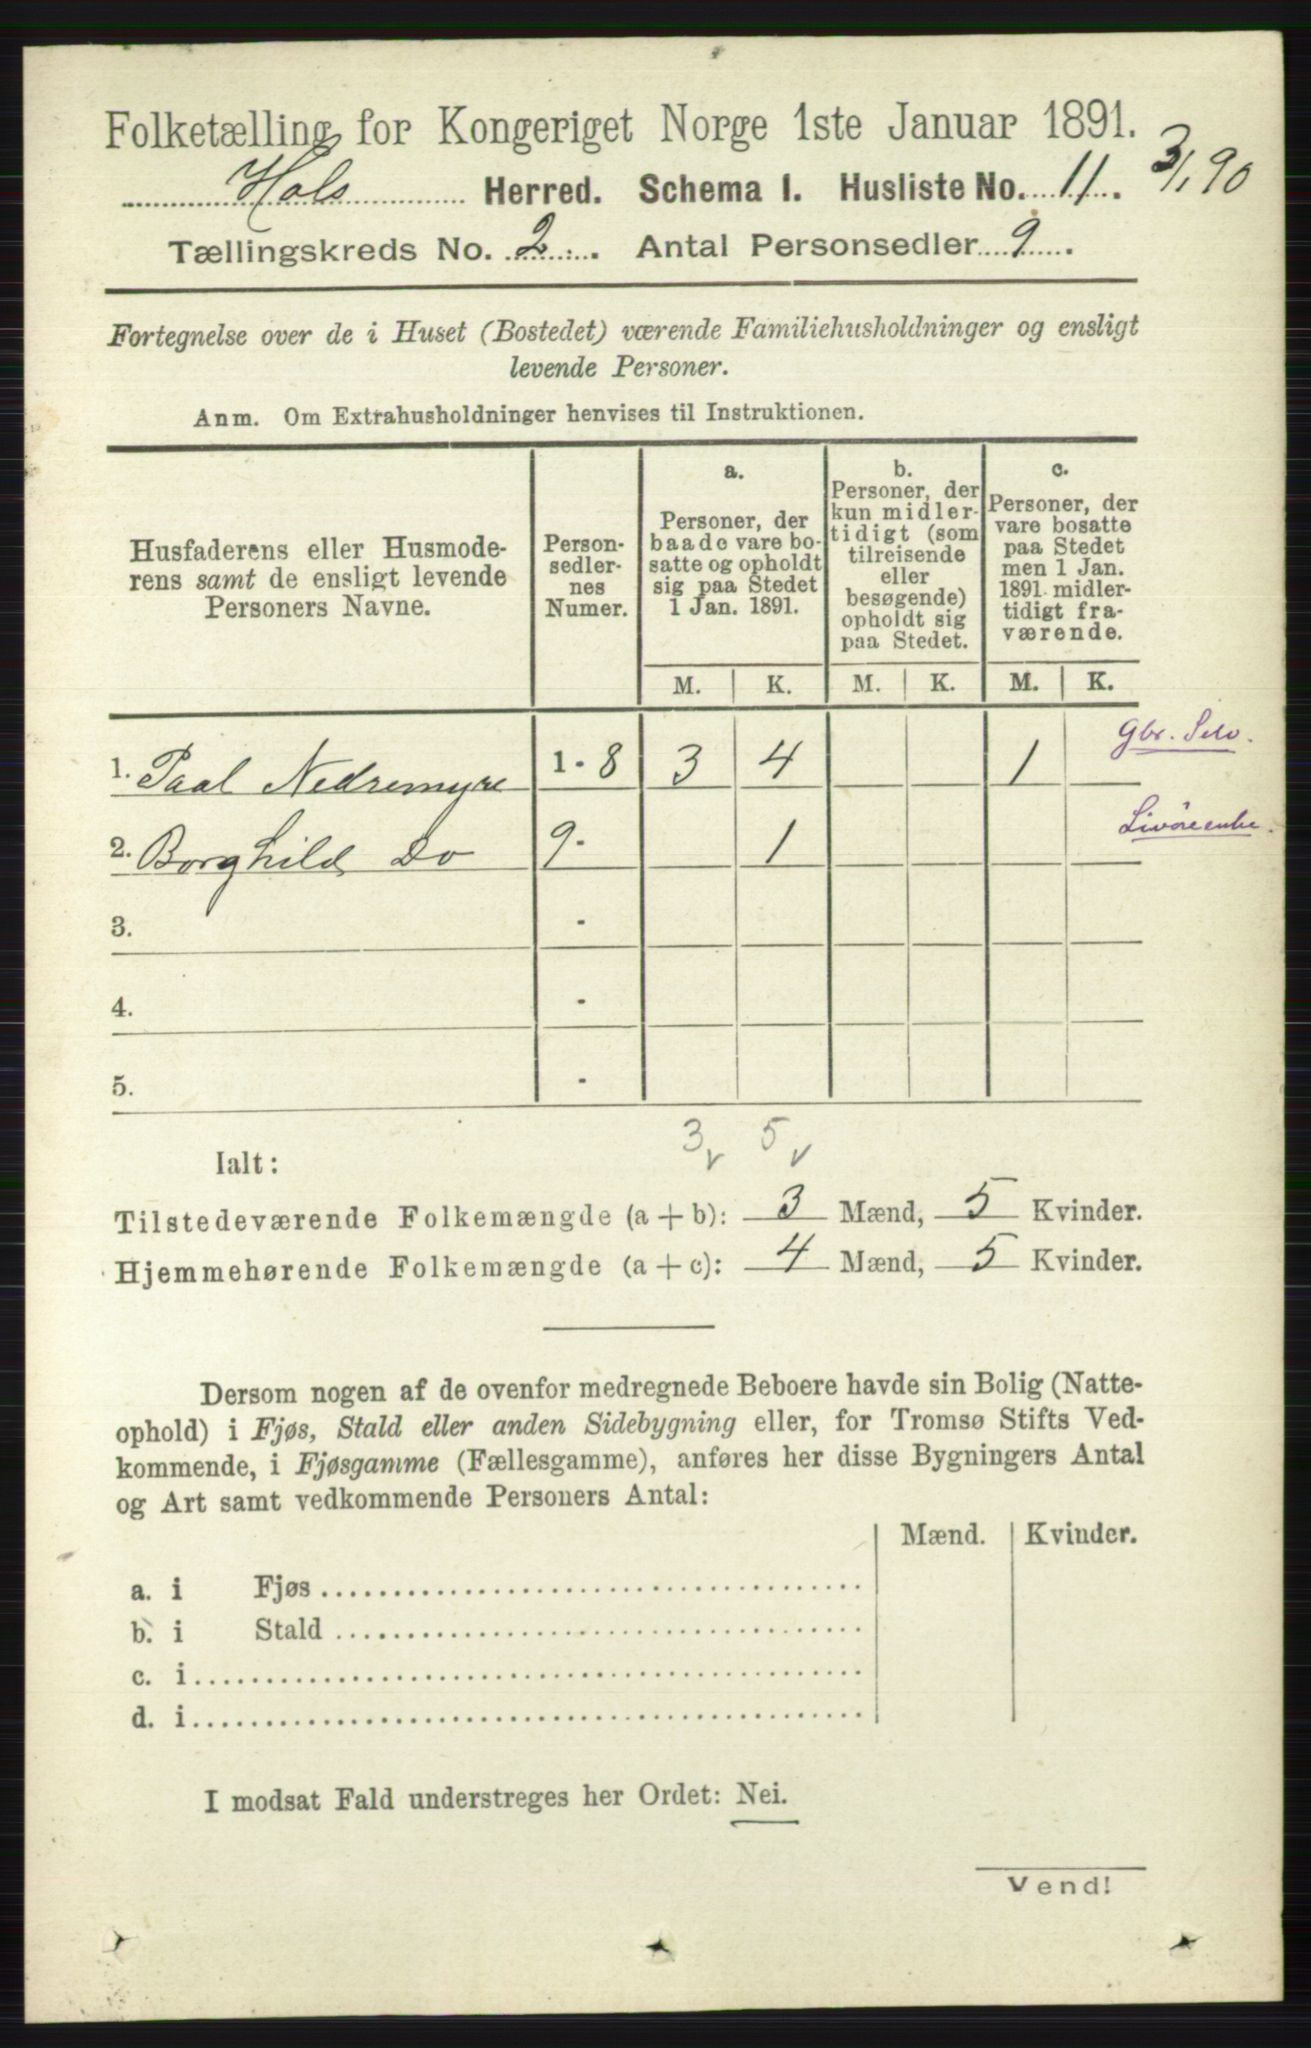 Folketælling for Kongeriget Norge 1ste Januar 1891.
Hols Herred. Schema I. Husliste No. 11. 3/1 90
Tællingskreds No. 2. Antal Personsedler 9.
Fortegnelse over de i Huset (Bostedet) værende Familiehusholdninger og ensligt
levende Personer.
Anm. Om Extrahusholdninger henvises til Instruktionen.
Husfaderens eller Husmode-
rens samt de ensligt levende
Personers Navne.
Person-
sedler-
nes
Numer.
a.
Personer, der
baade vare bo-
satte og opholdt
sig paa Stedet
1 Jan. 1891.
b.
Personer, der
kun midler-
tidigt (som
tilreisende
eller
besøgende)
opholdt sig
paa Stedet.
c.
Personer, der
vare bosatte
paa Stedet
men 1 Jan.
1891 midler-
tidigt fra-
værende.
M. K. M. K. M. K.
1. Paal Nedremyre 1 - 8 3 4 1 Gbr. Selv.
2. Borghild Do 9 - 1
3. -
4. -
5. -
3 5
Ialt:
Tilstedeværende Folkemængde (a + b): 3 Mænd, 5 Kvinder.
Hjemmehørende Folkemængde (a + c): 4 Mænd, 5 Kvinder.
Dersom nogen af de ovenfor medregnede Beboere havde sin Bolig (Natte-
ophold) i Fjøs, Stald eller anden Sidebygning eller, for Tromsø Stifts Ved-
kommende, i Fjøsgamme (Fællesgamme), anføres her disse Bygningers Antal
og Art samt vedkommende Personers Antal:
Mænd. Kvinder.
a. i Fjøs
b. i Stald
c. i
d. i
I modsat Fald understreges her Ordet: Nei.
Vend!